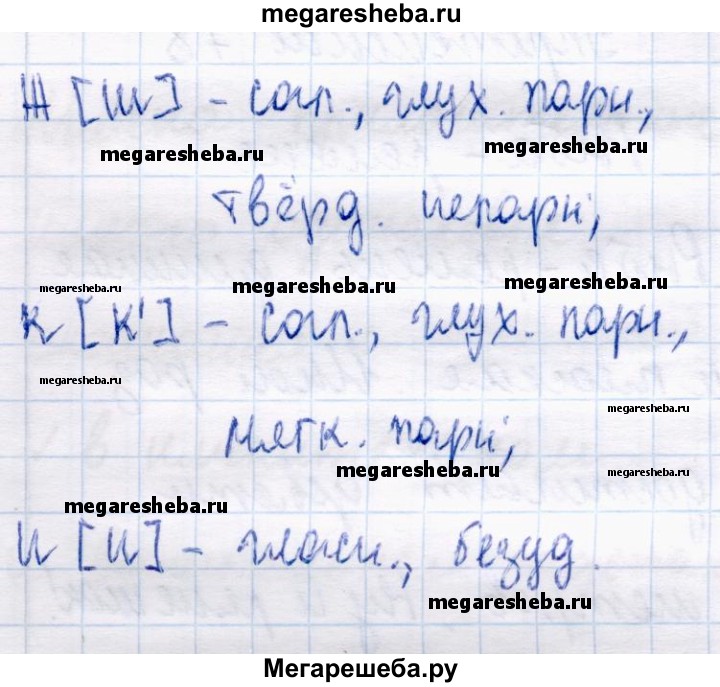 megaresheba.ru
Ж [ш] – согл., глух. парн.,
megaresheba.ru megaresheba.ru
твёрд. непарн;
megaresheba.ru megaresheba.ru megaresheba.ru
к [к'] – согл., глух. парн.,
megaresheba.ru megaresheba.ru
мягк. парн;
megaresheba.ru megaresheba.ru
megaresheba.ru
и [и] – гласн., безуд.
megaresheba.ru
Мегарешеба.ру